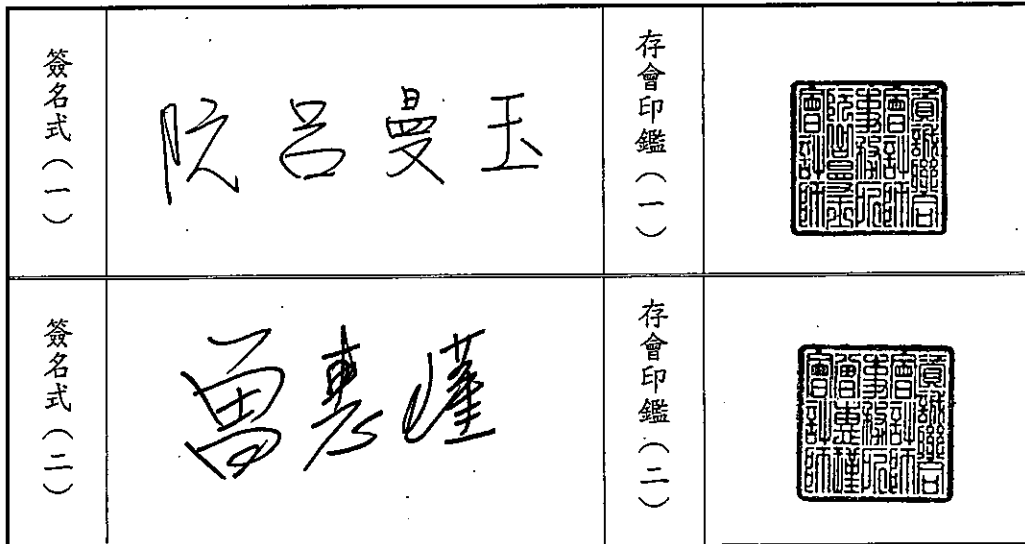 簽名式(一)
阮呂曼玉
存會印鑑(一)
資誠聯合
會計師
事務所
阮呂曼玉
會計師
簽名式(二)
曾惠瑾
存會印鑑(二)
資誠聯合
會計師
事務所
曾惠瑾
會計師